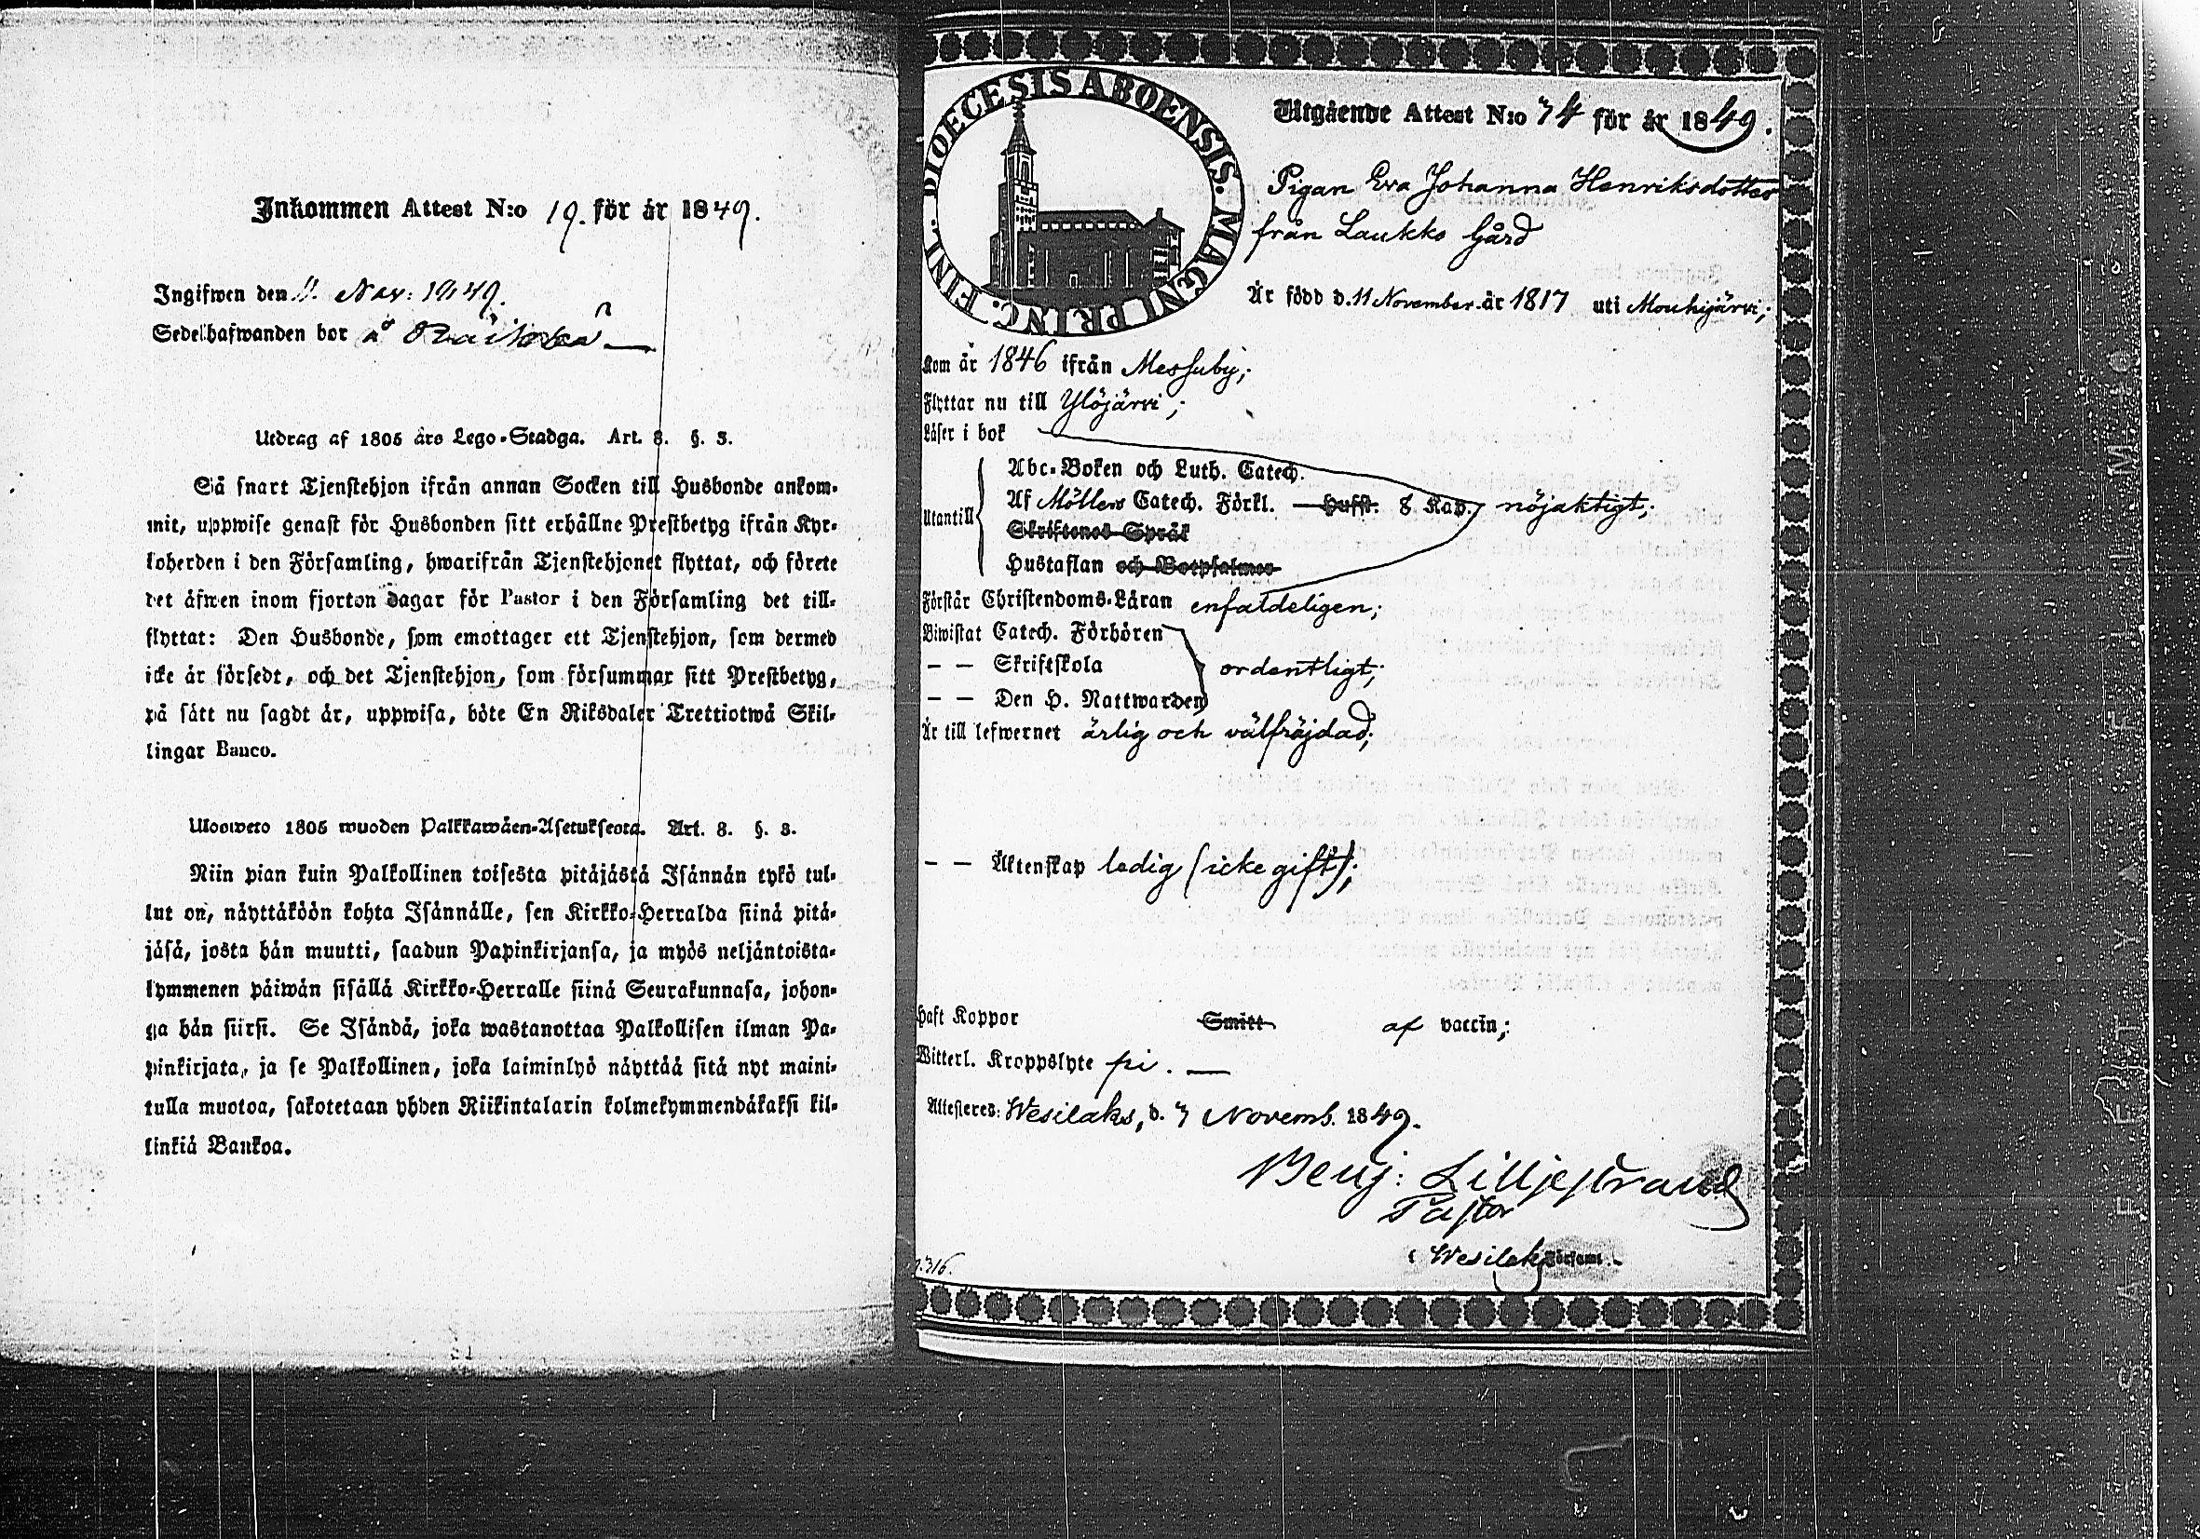 Inkommen Attest N:o 19. för år 1849.
Ingifwen den 11. Nov: 1849.
Sedelhafwanden bor å
Utdrag af 1805 års Lego-Stadga. Art. 8. §. 3.
Så snart Tjenstehjon ifrån annan Socken till Husbonde ankom-
mit, uppwise genast för Husbonden sitt erhållne Prestbetyg ifrån Kyr-
koherden i den Församling, hwarifrån Tjenstehjonet flyttat, och förete
det äfwen inom fjorton dagar för Pastor i den Församling det till-
flyttat: Den Husbonde, som emottager ett Tjenstehjon, som dermed
icke är försedt, och det Tjenstehjon, som försummar sitt Prestbetyg,
på sätt nu sagdt är, uppwisa, böte En Riksdaler Trettiotwå Skil-
lingar Banco.
Ulosweto 1805 wuoden Palkkawäen-Asetuksesta. Art. 8. §. 3.
Niin pian kuin Palkollinen toisesta pitäjästä Isännän tykö tul-
lut on, näyttäköön kohta Isännälle, sen Kirkko-Herralda siinä pitä-
jäsä, josta hän muutti, saadun Papinkirjansa, ja myös neljäntoista-
kymmenen päiwän sisällä Kirkko-Herralle siinä Seurakunnasa, johon-
ga hän siirsi. Se Isändä, joka wastanottaa Palkollisen ilman Pa-
pinkirjata, ja se Palkollinen, joka laiminlyö näyttää sitä nyt maini-
tulla muotoa, sakotetaan yhden Riikintalarin kolmekymmendäkaksi kil-
linkiä Bankoa.
DIOECESIS ABOENSIS. MAGNI PRINC. FINL.
Utgående Attest N:o 74 för år 1849.
Pigan Eva Johanna Henriksdotter
från Laukko Gård
Är född d. 11 November år 1817 uti Mouhijärvi;
Kom år 1846 ifrån Messuby;
Flyttar nu till Ylöjärvi;
Läser i bok
Abc-Boken och Luth. Catech.
Utantill Af Möllers Catech. Förkl. Hufst. 8 Kap. nöjaktigt;
Skriftenes Språk
Hustaflan och Botpsalmer
Förstår Christendoms-Läran enfaldeligen;
Biwistat Catech. Förhören
— — Skriftskola ordentligt;
— — Den H. Nattwarden
Är till lefwernet ärlig och välfräjdad;
— — Äktenskap ledig (icke gift);
Haft Koppor Smitt af vaccin;
Witterl. Kroppslyte fri. —
Attesteres: Wesilaks, d. 7 Novemb. 1849.
Benj: Lilljestrand
Pastor
i Wesilaks Församl.
316.